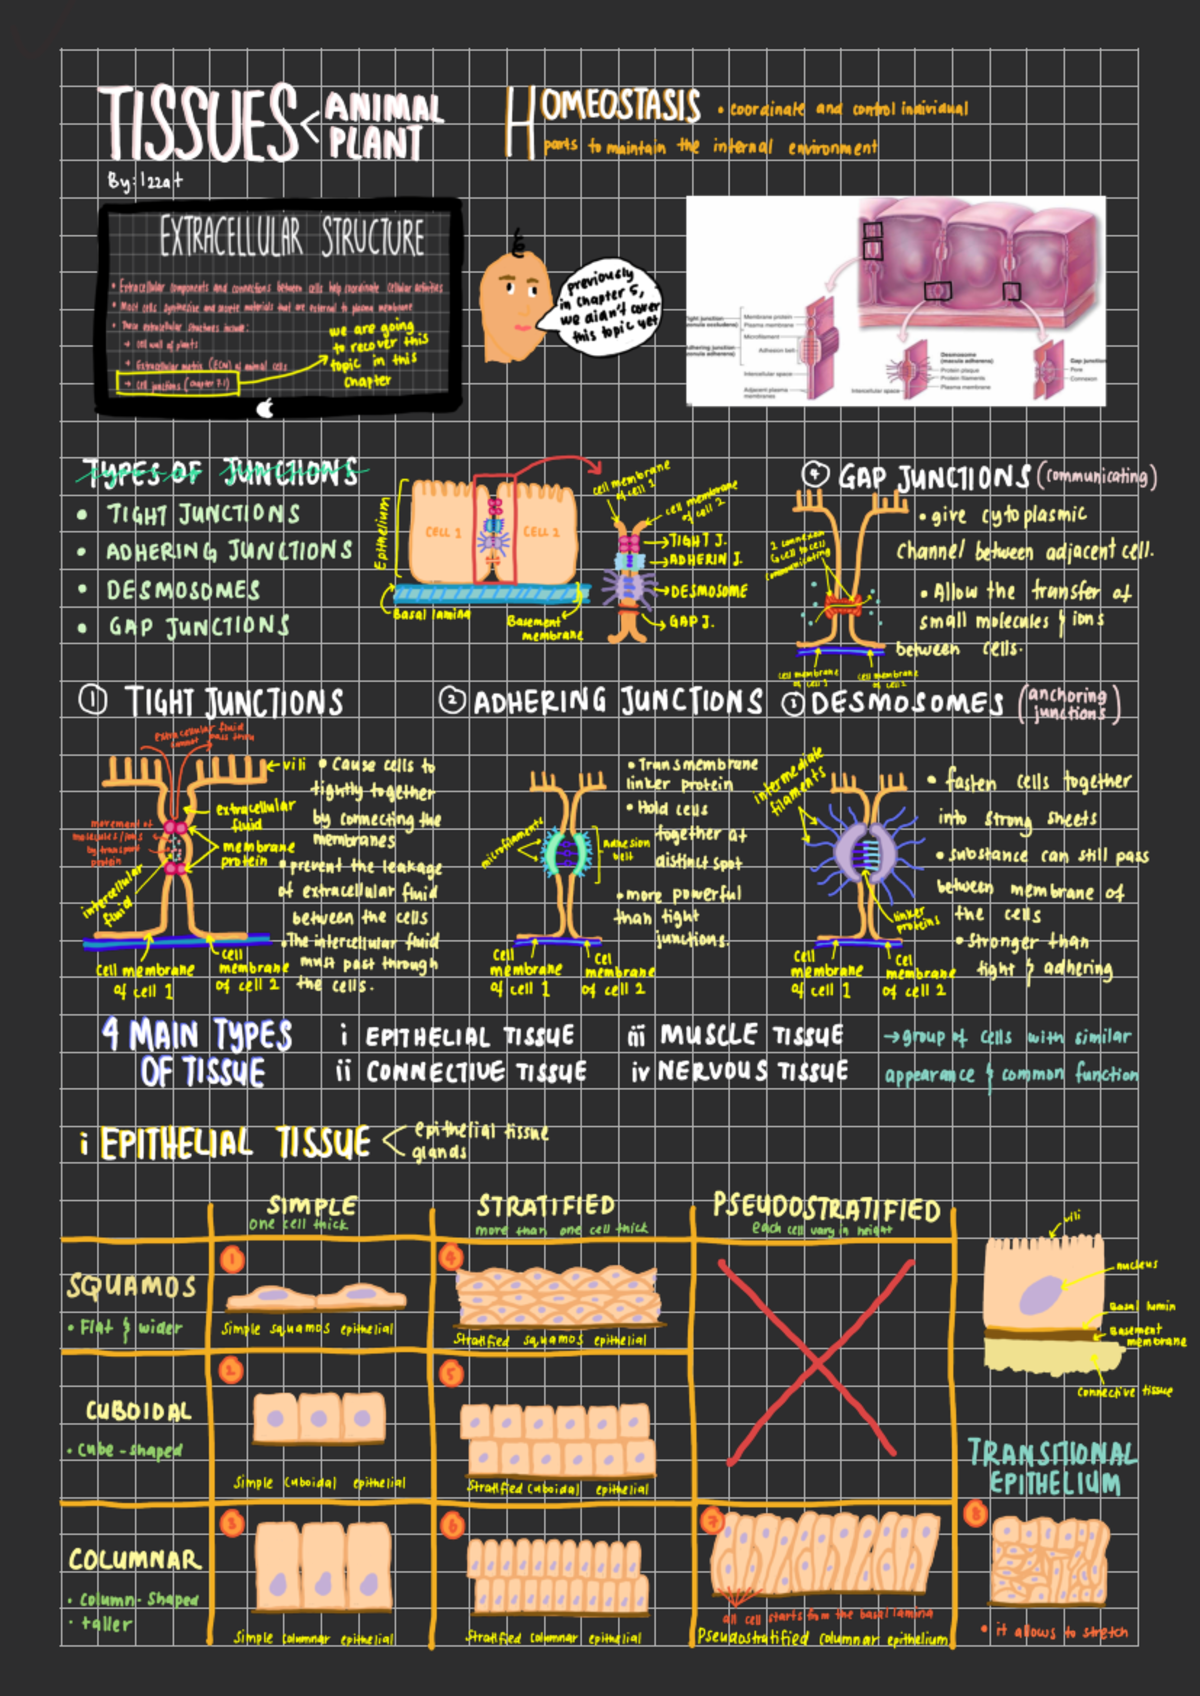 TISSUES < ANIMAL
PLANT
By: Izzat
HOMEOSTASIS • coordinate and control individual
parts to maintain the internal environment
EXTRACELLULAR STRUCTURE
• Extracellular components and connections between cells help coordinate cellular activities
• Most cells synthesize and secrete materials that are external to plasma membrane
• These extracellular structures include:
→ cell wall of plants
→ Extracellular matrix (ECM) of animal cells
→ Cell junctions (chapter 7.1)
we are going
to recover this
topic in this
chapter
previously
in chapter 5,
we didn't cover
this topic yet
Tight junction
Membrane protein
Plasma membrane
Adhering junction
Microfilament
Adhesion belt
Intercellular space
Adjacent plasma
membranes
Desmosome
(macula adherens)
Protein plaque
Protein filaments
Plasma membrane
Intercellular space
Gap junction
Pore
Connexon
TYPES OF JUNCTIONS
• TIGHT JUNCTIONS
• ADHERING JUNCTIONS
• DESMOSOMES
• GAP JUNCTIONS
Epithelium
CELL 1
CELL 2
Basal lamina
Basement
membrane
cell membrane
of cell 1
cell membrane
of cell 2
→ TIGHT J.
→ ADHERIN J.
→ DESMOSOME
→ GAP J.
4 GAP JUNCTIONS (communicating)
• give cytoplasmic
channel between adjacent cell.
• Allow the transfer of
small molecules & ions
between cells.
2 connexon
cell to cell
communicating
cell membrane
of cell 1
cell membrane
of cell 2
1 TIGHT JUNCTIONS
extracellular fluid
cannot pass thru
vili
extracellular
fluid
movement of
molecules/ions
by transport
protein
membrane
protein
intercellular
fluid
Cell membrane
of cell 1
Cell
membrane
of cell 2
• Cause cells to
tightly together
by connecting the
membranes
• prevent the leakage
of extracellular fluid
between the cells
• The intercellular fluid
must past through
the cells.
2 ADHERING JUNCTIONS
microfilaments
Adhesion
belt
Cell
membrane
of cell 1
Cel
membrane
of cell 2
• Transmembrane
linker protein
• Hold cells
together at
distinct spot
• more powerful
than tight
junctions.
3 DESMOSOMES (anchoring
junctions)
intermediate
filaments
linker
proteins
Cell
membrane
of cell 1
Cel
membrane
of cell 2
• fasten cells together
into strong sheets
• substance can still pass
between membrane of
the cells
• stronger than
tight & adhering
4 MAIN TYPES
OF TISSUE
i EPITHELIAL TISSUE
ii CONNECTIVE TISSUE
iii MUSCLE TISSUE
iv NERVOUS TISSUE
→ group of cells with similar
appearance & common function
i EPITHELIAL TISSUE < epithelial tissue
glands
SIMPLE
one cell thick
STRATIFIED
more than one cell thick
PSEUDOSTRATIFIED
each cell vary in height
SQUAMOS
• Flat & wider
1
Simple squamos epithelial
4
Stratified squamos epithelial
vili
nucleus
Basal lamin
Basement
membrane
connective tissue
CUBOIDAL
• Cube-shaped
2
Simple Cuboidal epithelial
5
Stratified Cuboidal epithelial
TRANSITIONAL
EPITHELIUM
COLUMNAR
• Column-shaped
• taller
3
Simple columnar epithelial
6
Stratified columnar epithelial
7
all cell starts from the basal lamina
Pseudostratified columnar epithelium
8
• it allows to stretch